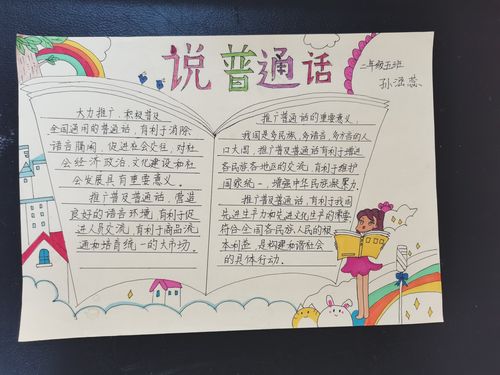 说普通话
二年级五班
孙滋蕊
大力推广、积极普及
全国通用的普通话,有利于消除
语言隔阂,促进社会交往,对社
会经济、政治、文化建设和社
会发展具有重要意义。
推广普及普通话,营造
良好的语言环境,有利于促
进人员交流,有利于商品流
通和培育统一的大市场。
推广普通话的重要意义:
我国是多民族、多语言、多方言的人
口大国,推广普及普通话有利于增进
各民族各地区的交流,有利于维护
国家统一,增强中华民族凝聚力。
推广普及普通话,有利于我国
先进生产力和先进文化生产的需要
符合全国各民族人民的根
本利益,是构建和谐社会
的具体行动。